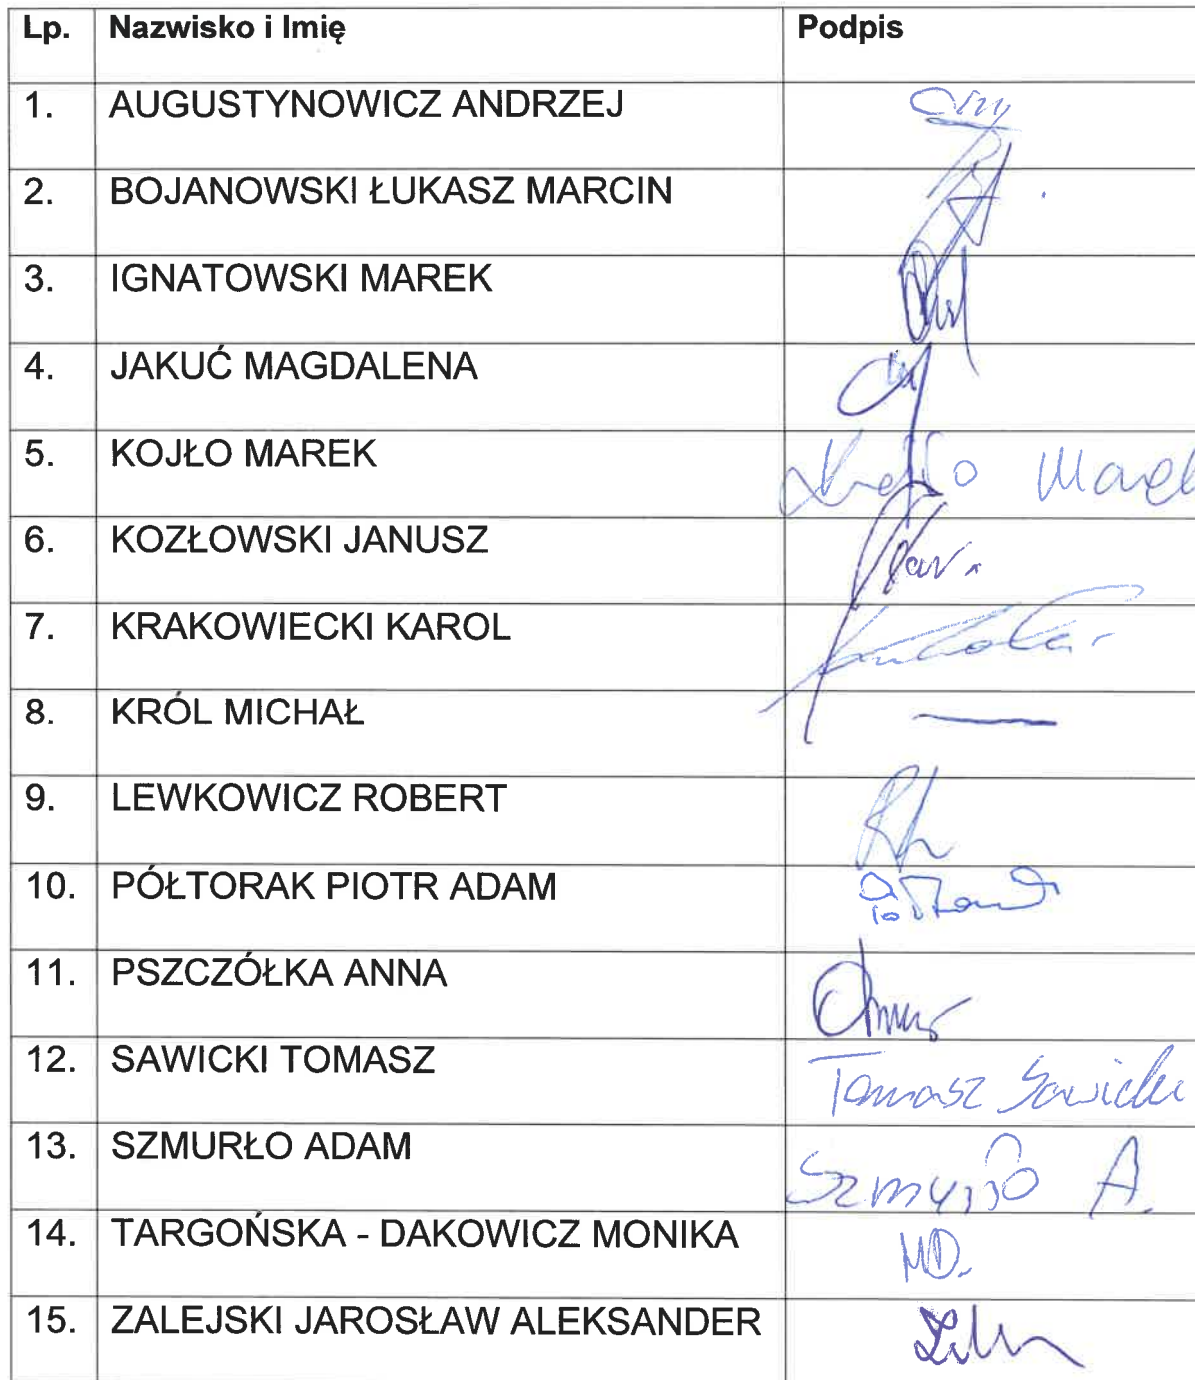 Lp. Nazwisko i Imię Podpis
1. AUGUSTYNOWICZ ANDRZEJ
2. BOJANOWSKI ŁUKASZ MARCIN
3. IGNATOWSKI MAREK
4. JAKUĆ MAGDALENA
5. KOJŁO MAREK
6. KOZŁOWSKI JANUSZ
7. KRAKOWIECKI KAROL
8. KRÓL MICHAŁ
9. LEWKOWICZ ROBERT
10. PÓŁTORAK PIOTR ADAM
11. PSZCZÓŁKA ANNA
12. SAWICKI TOMASZ Tomasz Sawicki
13. SZMURŁO ADAM Szmurło A.
14. TARGOŃSKA - DAKOWICZ MONIKA MD.
15. ZALEJSKI JAROSŁAW ALEKSANDER